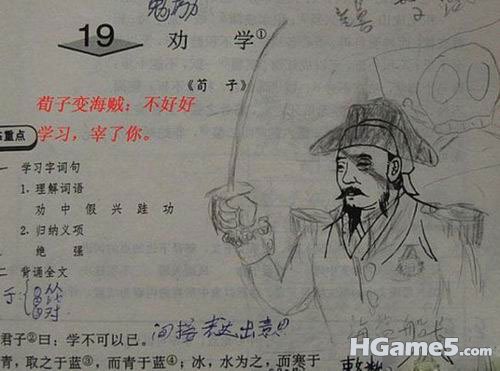 勉励
19 劝 学①
《荀 子》
荀子变海贼：不好好
学习，宰了你。
重点
一 学习字词句
1. 理解词语
劝 中 假 兴 跬 功
2. 归纳义项
绝 强
二 背诵全文
间接表达出意思
海营船长
君子②曰：学不可以已。
青，取之于蓝③，而青于蓝④；冰，水为之，而寒于
HGame5.com